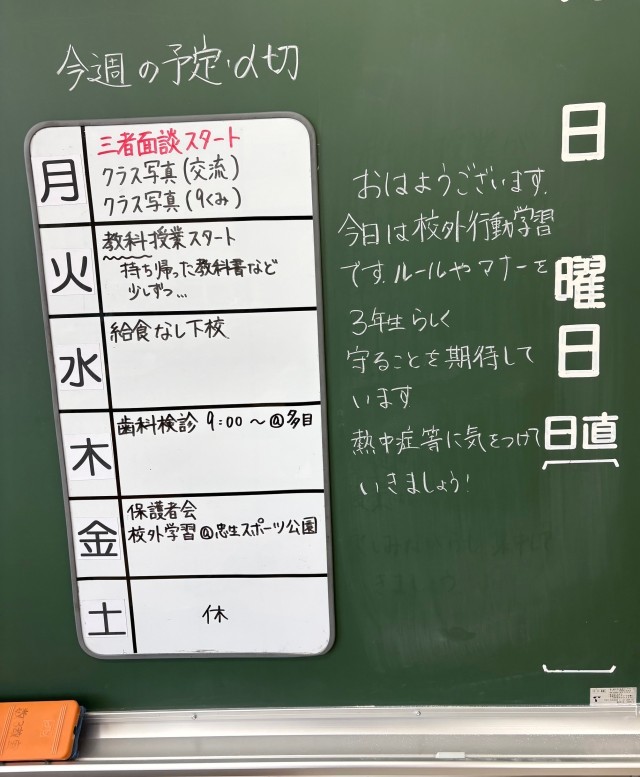 今週の予定・〆切
月
三者面談スタート
クラス写真(交流)
クラス写真(9くみ)
火
教科授業スタート
持ち帰った教科書など
少しずつ…
水
給食なし下校
木
歯科検診 9:00〜@多目
金
保護者会
校外学習@忠生スポーツ公園
土
休
おはようございます.
今日は校外行動学習
です.ルールやマナーを
3年生らしく
守ることを期待して
います
熱中症等に気をつけて
いきましょう!
日
曜
日
日直